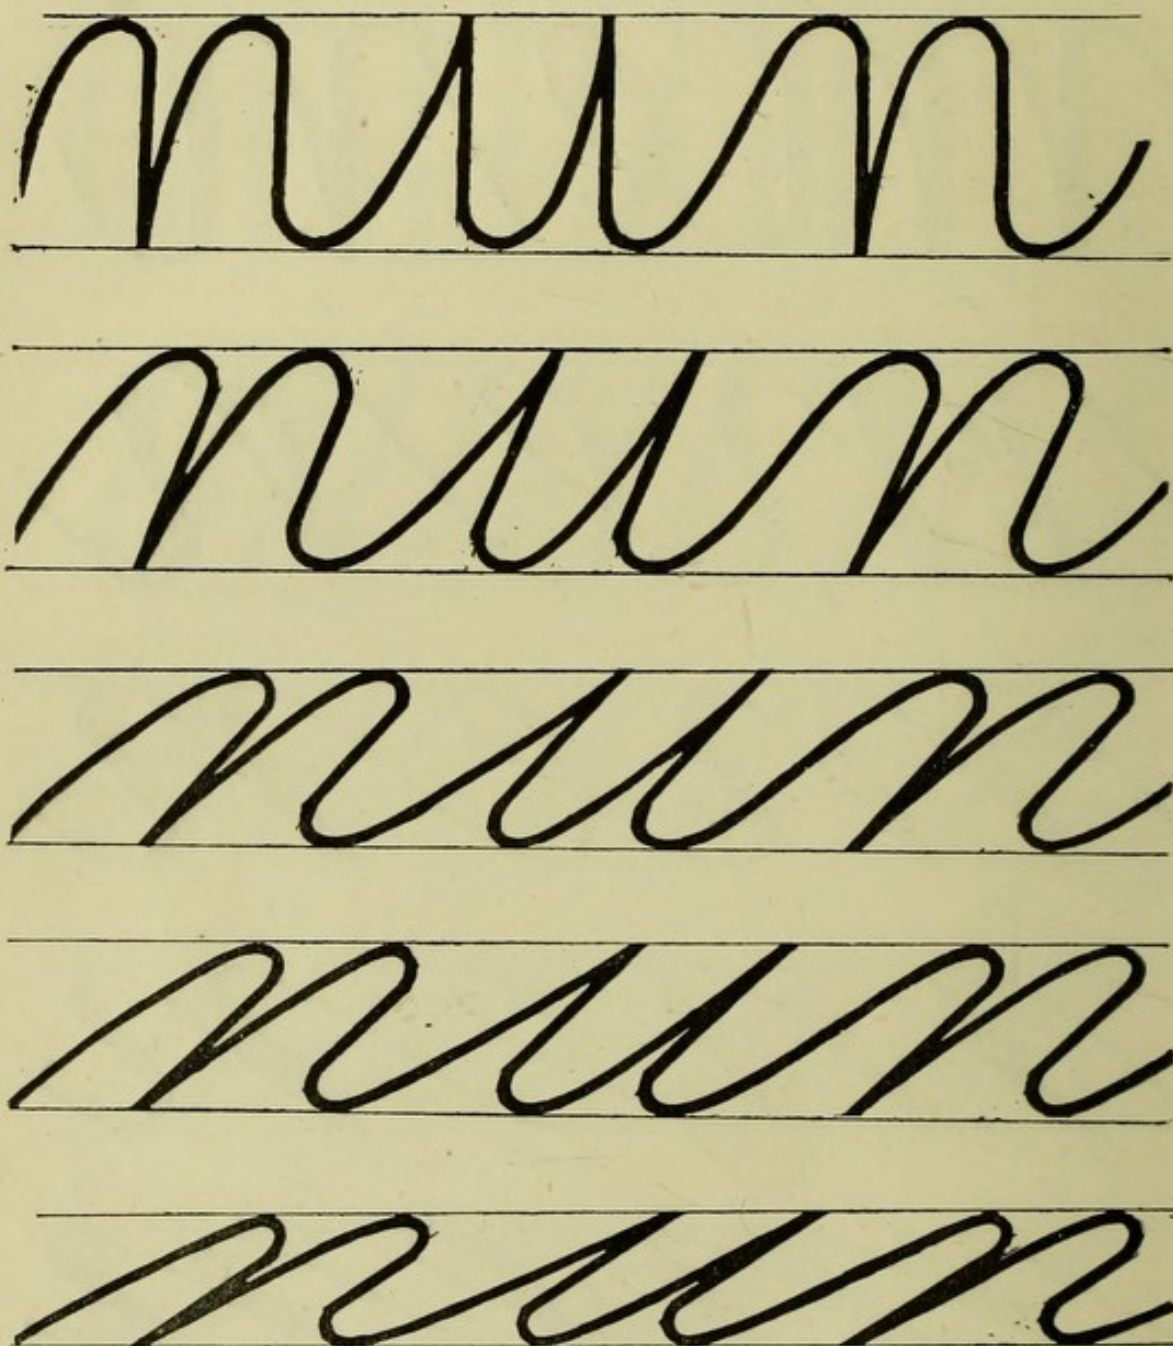 nun
nun
nun
nun
nun